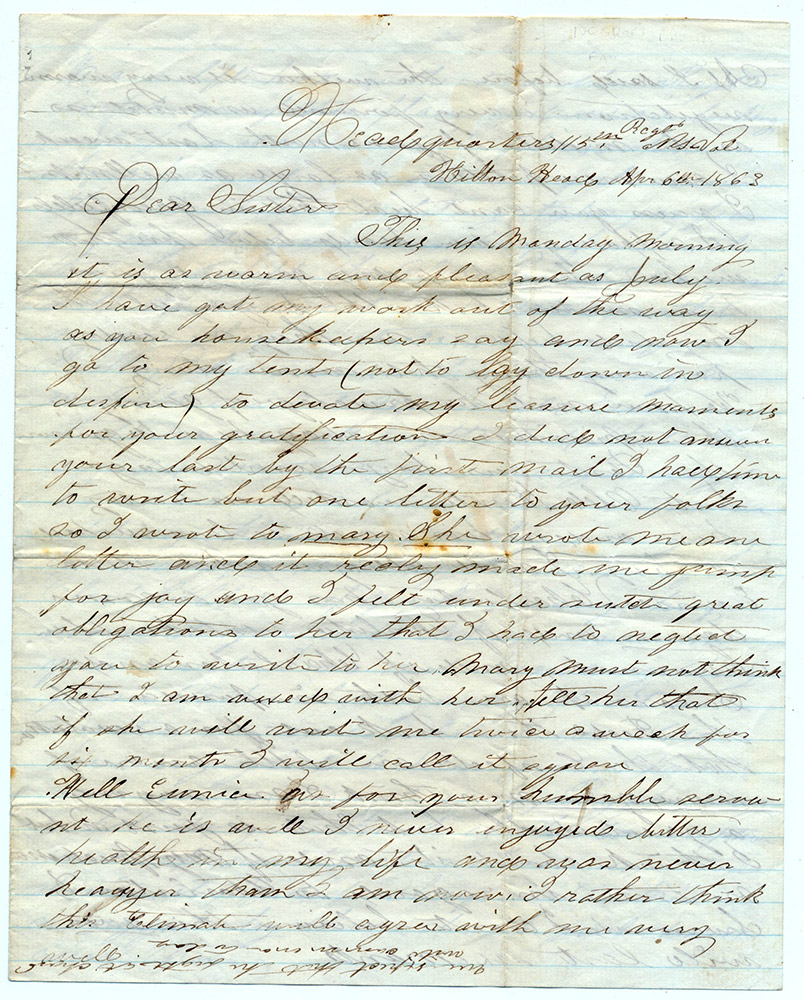 Headquarters 115th Regt NYS Vol
Hilton Head Apr 6th 1863
Dear Sister
This is Monday morning
it is as warm and pleasant as July
I have got my work out of the way
as you housekeepers say and now I
go to my tent (not to lay down in
dispair) to devote my leasure moments
for your gratification I did not answer
your last by the first mail I had time
to write but one letter to your folks
so I wrote to mary. She wrote me one
letter and it realy made me jump
for joy and I felt under sutch great
obligations to her that I had to neglect
you to write to her. Mary must not think
that I am vexed with her, tell her that
if she will writ me twice a week for
six month I will call it square
Well Eunice as for your humble serva-
nt he is well I never enjoyed bitter
health in my life and was never
heavyer than I am now. I rather think
this Climate will agree with me very